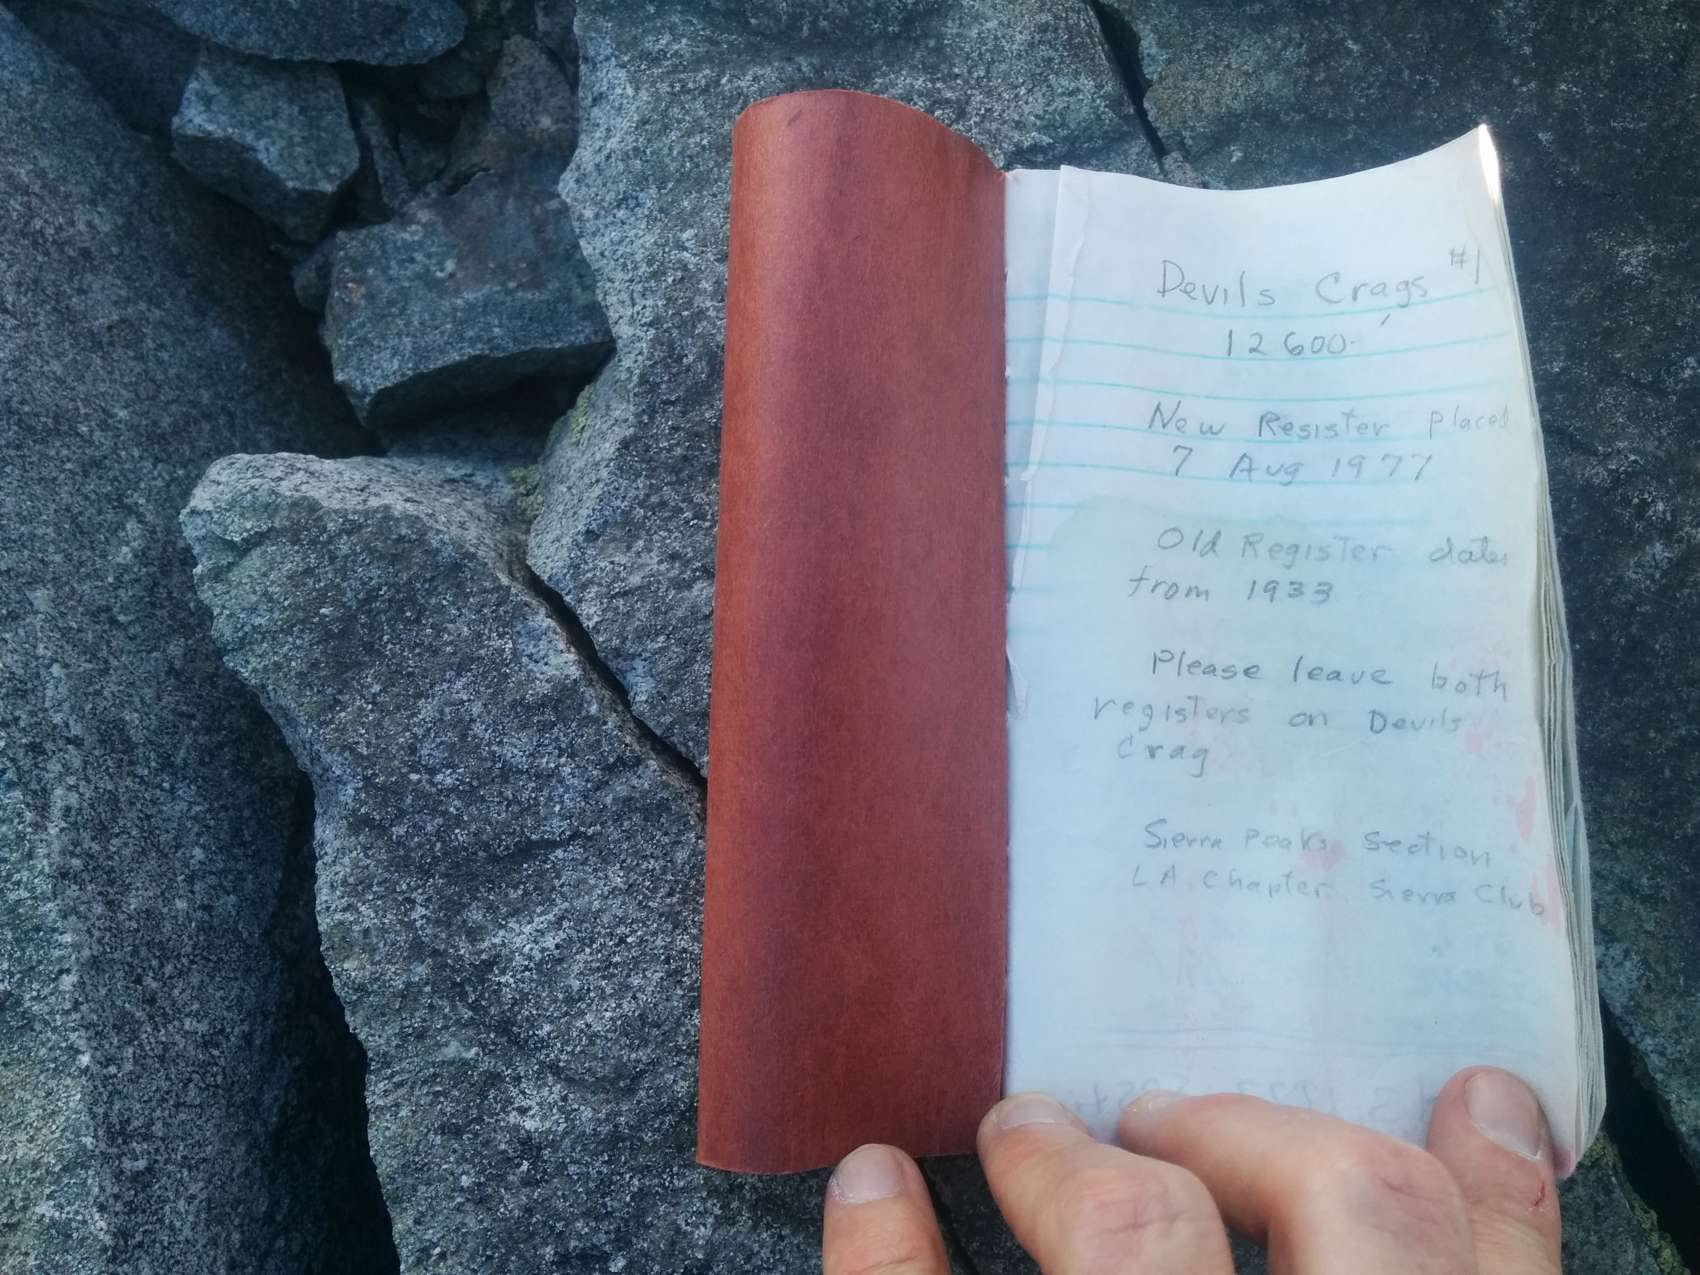 Devils Crags #1
12600'
New Register placed
7 Aug 1977
Old Register dates
from 1933
Please leave both
registers on Devils
Crag
Sierra Peaks Section
LA Chapter Sierra Club